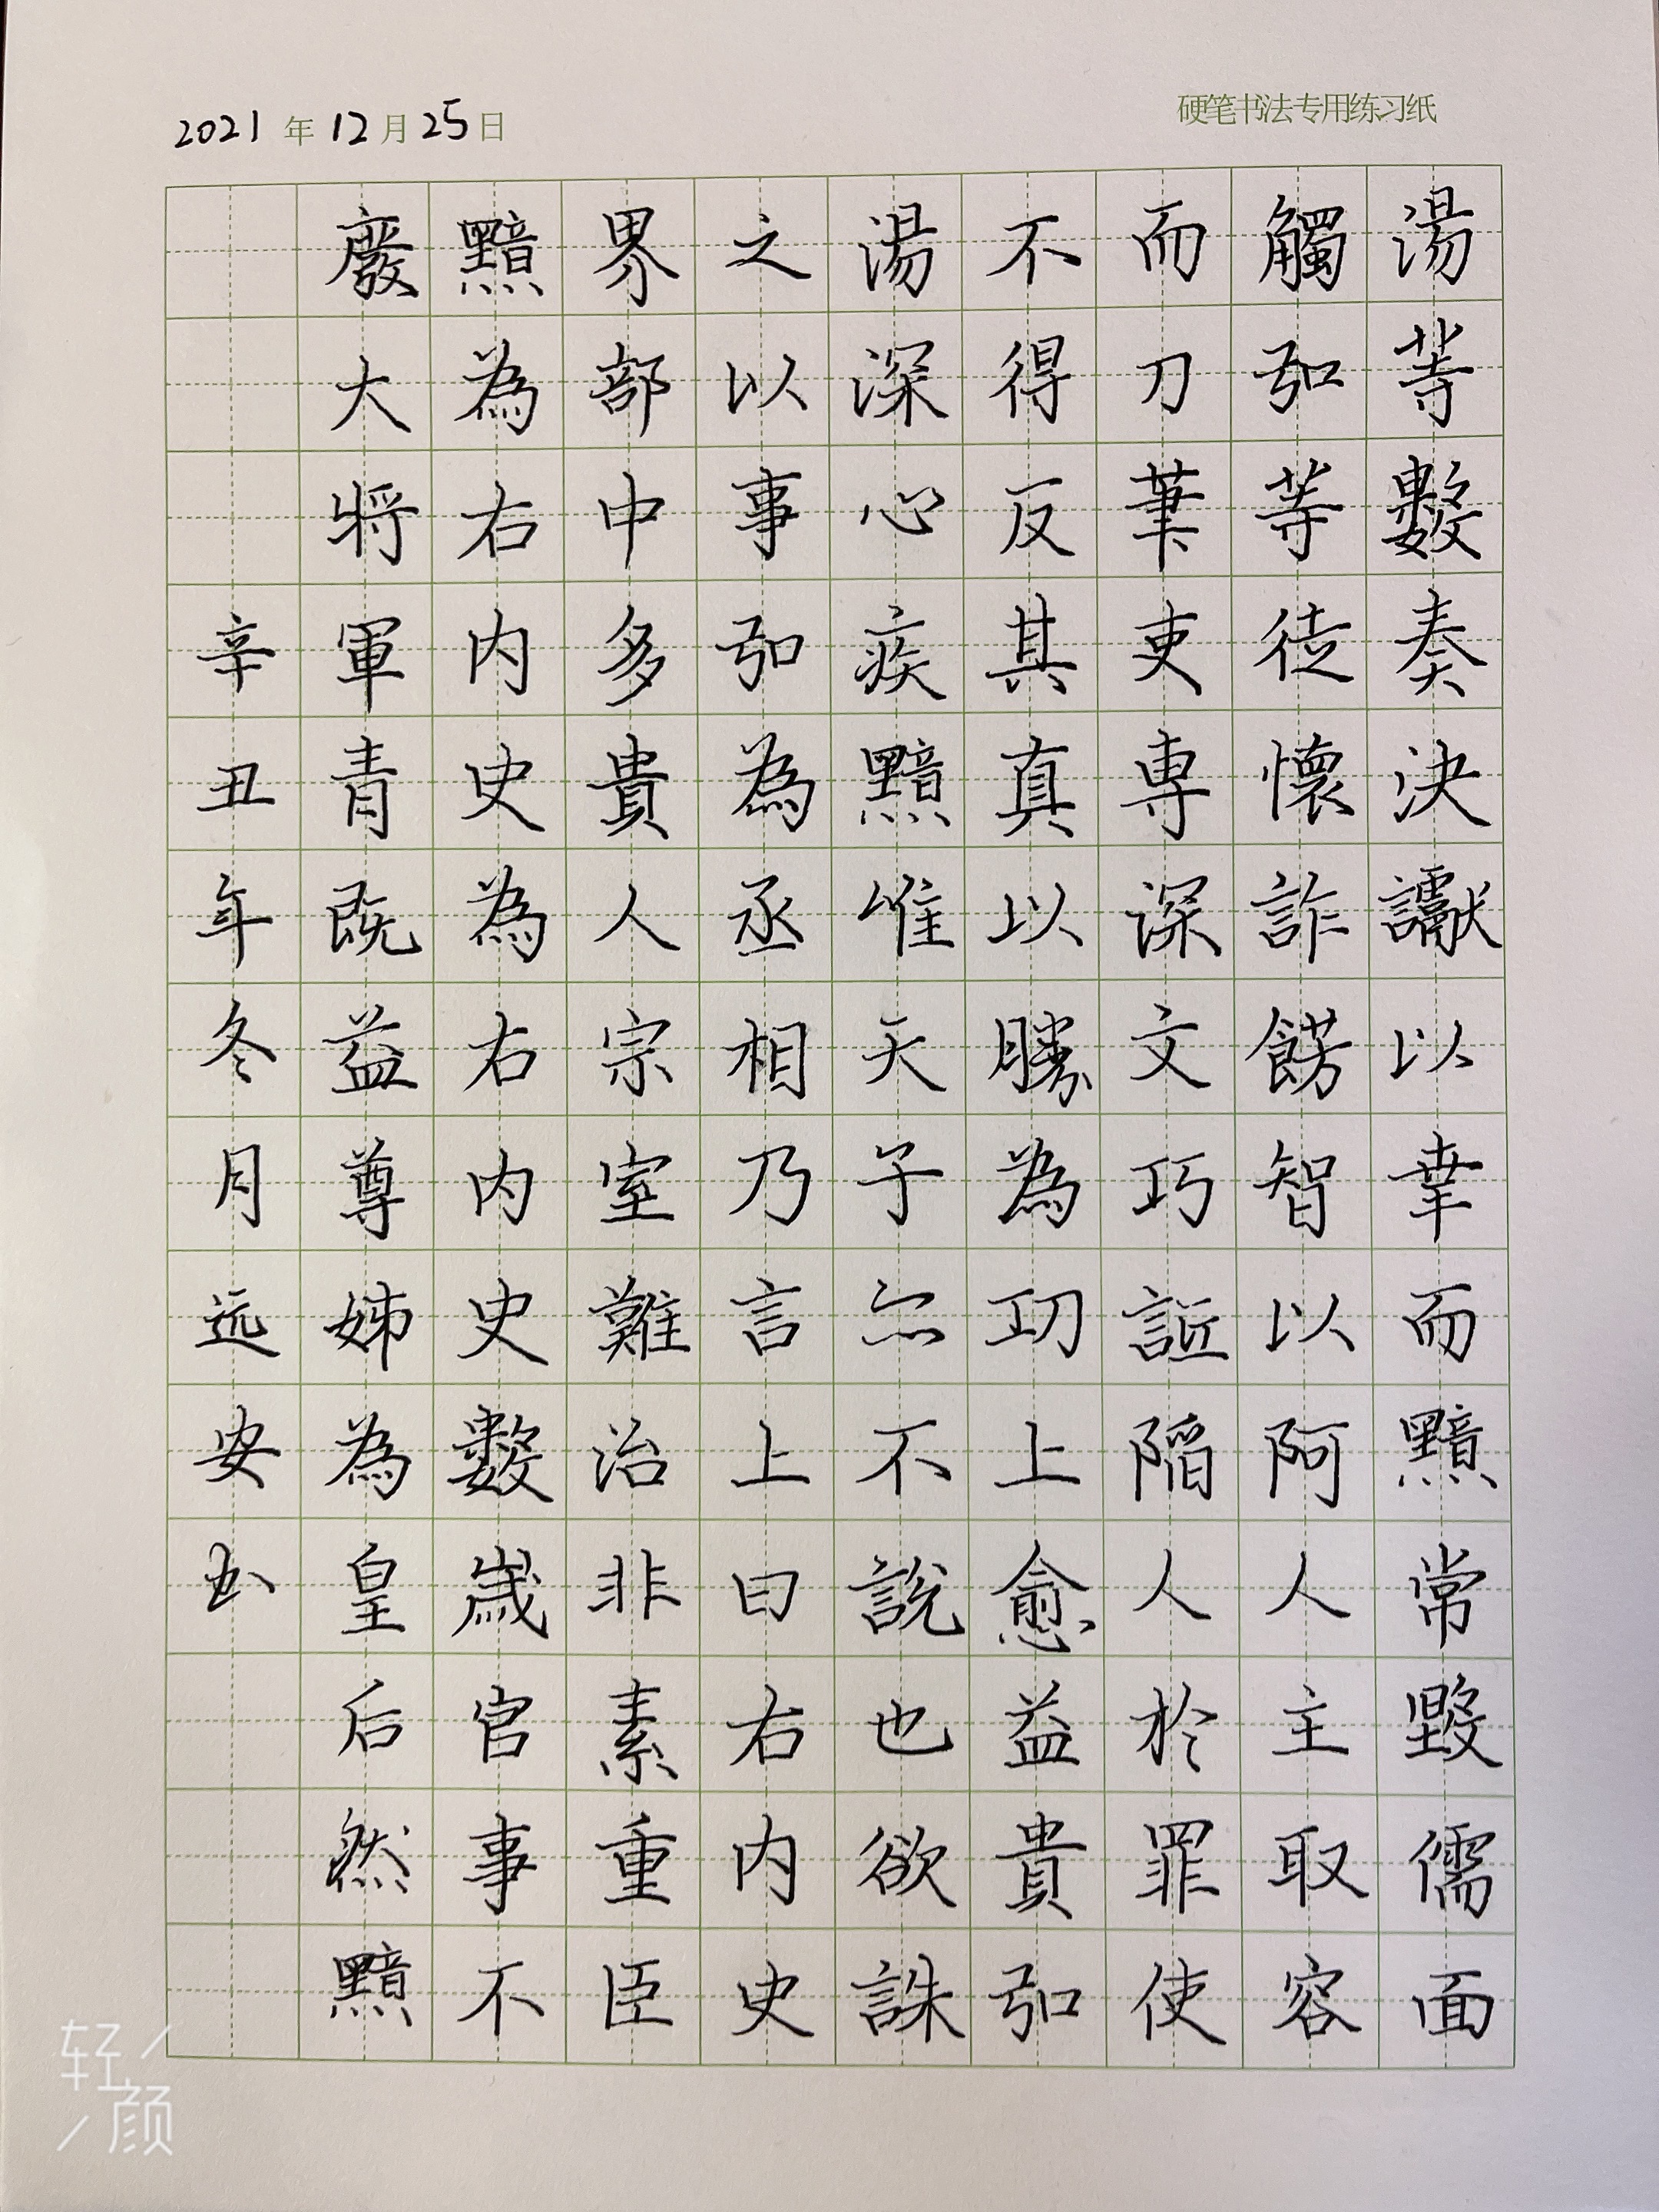 2021年12月25日
硬笔书法专用练习纸
湯等數奏決讞以幸而黯常毀儒面
觸弘等徒懷詐飾智以阿人主取容
而刀筆吏專深文巧詆陷人於罪使
不得反其真以勝為功上愈益貴弘
湯深心疾黯唯天子亦不說也欲誅
之以事弘為丞相乃言上曰右內史
界部中多貴人宗室難治非素重臣
黯為右內史為右內史數歲官事不
廢大將軍青既益尊姊為皇后然黯
辛丑年冬月远安书
轻颜